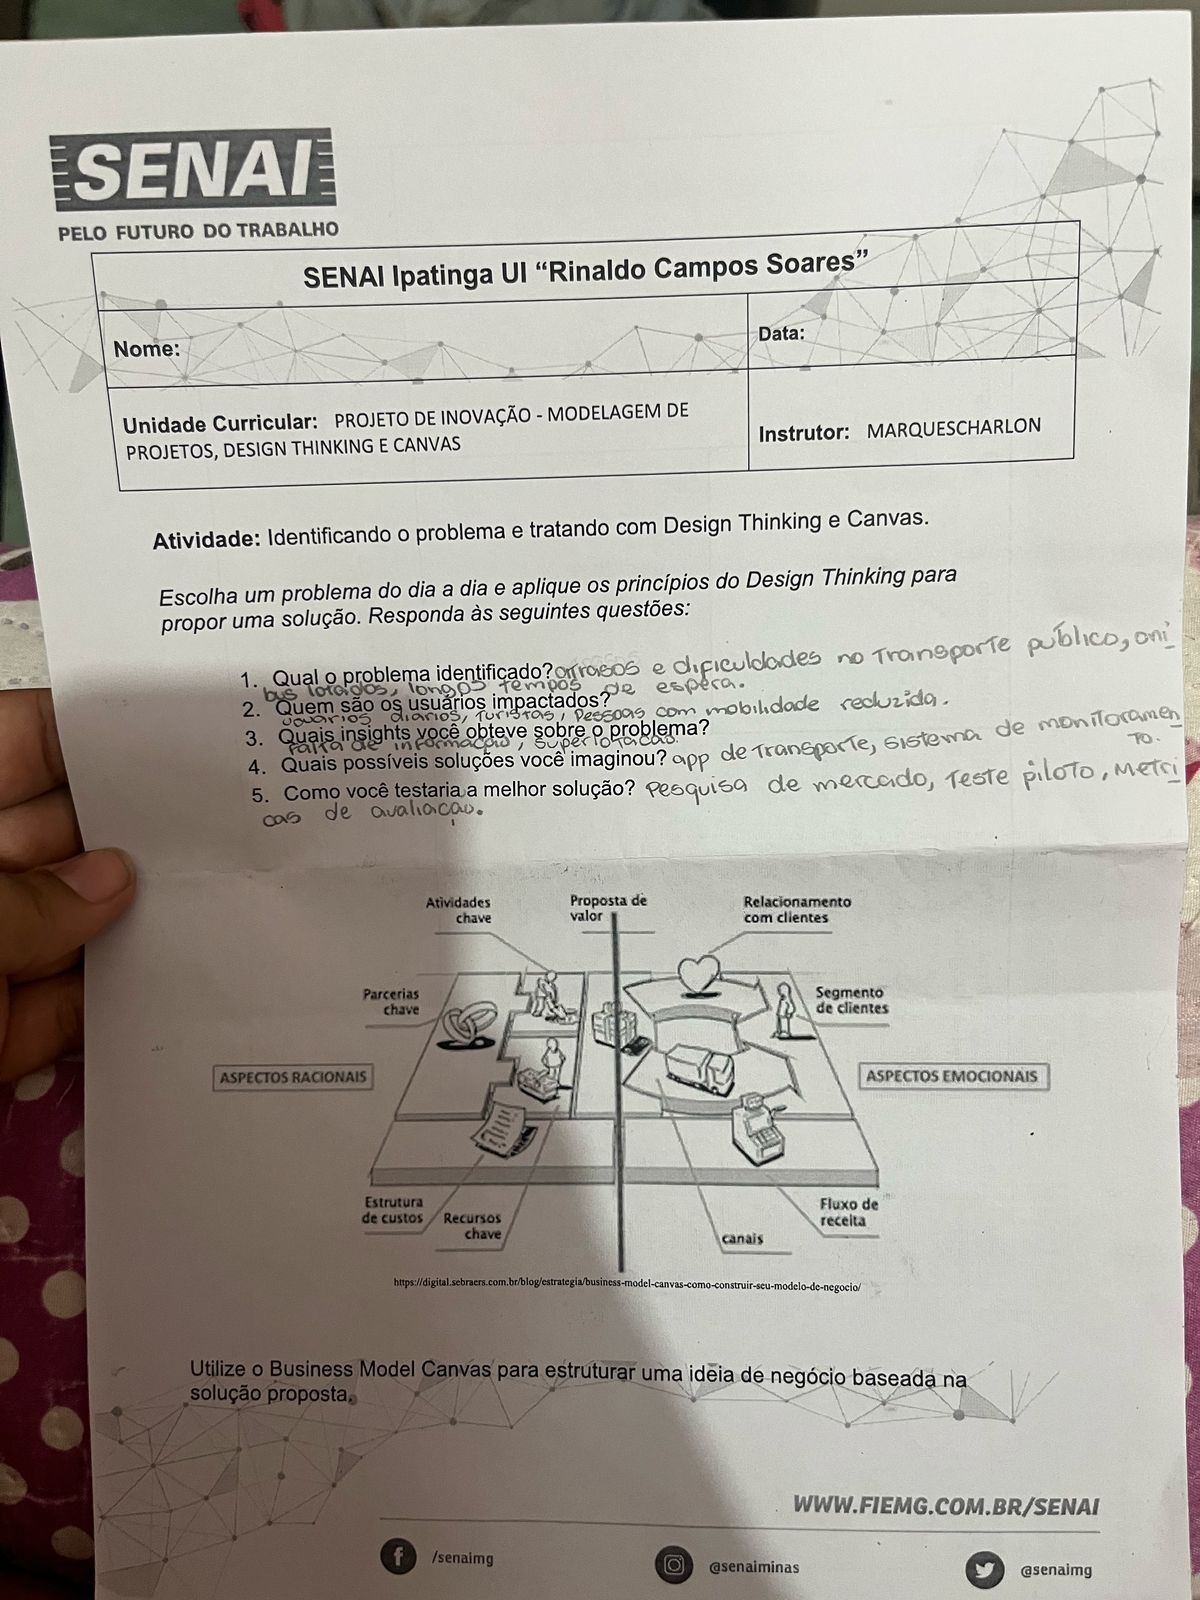 SENAI
PELO FUTURO DO TRABALHO
SENAI Ipatinga UI “Rinaldo Campos Soares”
Nome:
Data:
Unidade Curricular: PROJETO DE INOVAÇÃO - MODELAGEM DE
PROJETOS, DESIGN THINKING E CANVAS
Instrutor: MARQUESCHARLON
Atividade: Identificando o problema e tratando com Design Thinking e Canvas.
Escolha um problema do dia a dia e aplique os princípios do Design Thinking para
propor uma solução. Responda às seguintes questões:
1. Qual o problema identificado? atrasos e dificuldades no Transporte público, oni
bus lotados, longos tempos de espera.
2. Quem são os usuários impactados?
usuários diarios, turistas, pessoas com mobilidade reduzida.
3. Quais insights você obteve sobre o problema?
falta de informação, superlotação.
4. Quais possíveis soluções você imaginou? app de Transporte, sistema de monitoramen
to.
5. Como você testaria a melhor solução? Pesquisa de mercado, Teste piloto, Metri
cas de avaliação.
Atividades
chave
Proposta de
valor
Relacionamento
com clientes
Parcerias
chave
Segmento
de clientes
ASPECTOS RACIONAIS
ASPECTOS EMOCIONAIS
Estrutura
de custos
Recursos
chave
canais
Fluxo de
receita
https://digital.sebraers.com.br/blog/estrategia/business-model-canvas-como-construir-seu-modelo-de-negocio/
Utilize o Business Model Canvas para estruturar uma ideia de negócio baseada na
solução proposta.
WWW.FIEMG.COM.BR/SENAI
/senaimg
@senaiminas
@senaimg